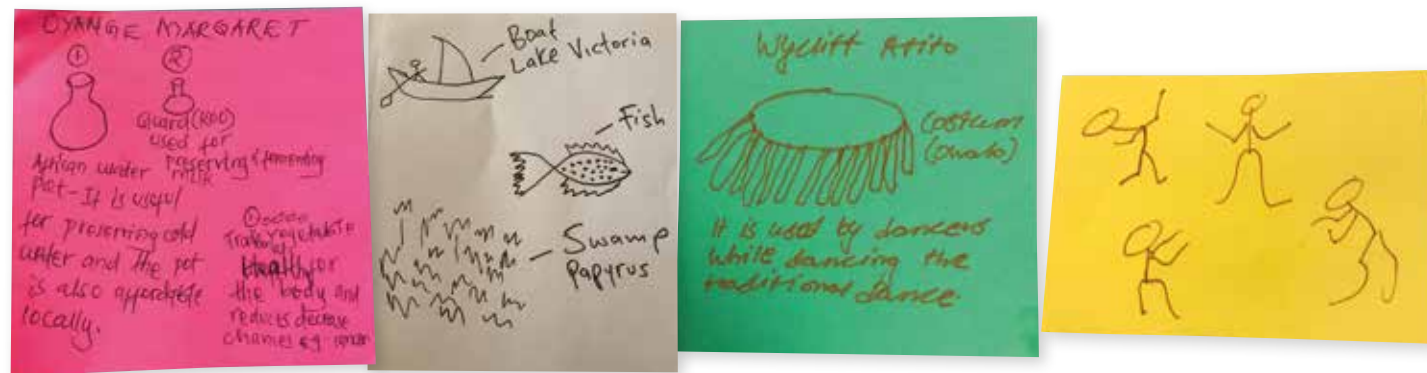 OYANGE MARGARET
1
2
Guard (KOO)
used for
preserving & fermenting
milk
African water
pot - It is useful
for preserving cold
water and the pot
is also affordable
locally.
vegetable
Healthy for
the body and
reduces decrease
chances eg. cancer
Boat
Lake Victoria
Fish
Swamp
papyrus
Wycliff Atito
Costum
(Owalo)
It is used by dancers
while dancing the
traditional dance.